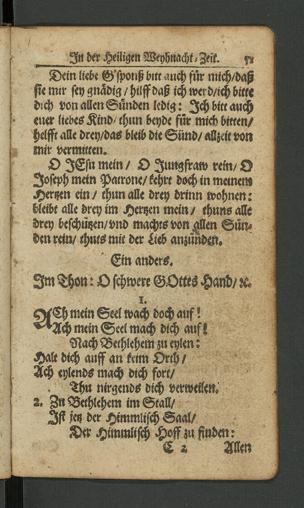 In der Heiligen Weyhnacht-Zeit. 51
Dein liebe G'sponß bitt auch für mich/daß
sie mir sey gnädig/hilff daß ich werd/ich bitte
dich von allen Sünden ledig: Ich bitt auch
euer liebes Kind/thun beyde für mich bitten/
helfft alle drey/das bleib die Sünd/allzeit von
mir vermitten.
O JEsu mein/ O Jungfraw rein/ O
Joseph mein Patrone/kehrt doch in meinem
Hertzen ein/ thun alle drey drinn wohnen:
bleibt alle drey im Hertzen mein/ thuns alle
drey beschützen/vnd machts von allen Sün-
den rein/thuts mit der Lieb anzünden.
Ein anders.
Im Thon: O schwere GOttes Hand/ ꝛc.
1.
ACh mein Seel wach doch auf!
Ach mein Seel mach dich auf!
Nach Bethlehem zu eylen:
Halt dich auff an keim Orth/
Ach eylends mach dich fort/
Thu nirgends dich verweilen.
2. Zu Bethlehem im Stall/
Ist jetz der Himmlisch Saal/
Der Himmlisch Hoff zu finden:
C 2 Allen